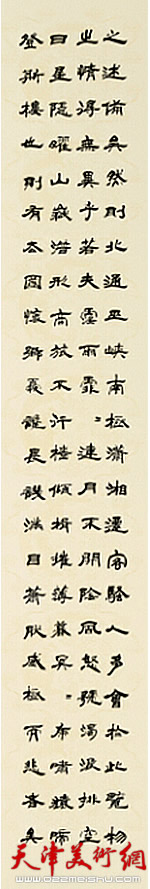 之述備矣然則北通巫峽南極瀟湘遷客騷人多會於此覽物
之情得無異乎若夫霪雨霏〻連月不開陰風怒號濁浪排空
日星隱曜山嶽潛形商旅不行檣傾楫摧薄暮冥〻虎嘯猿啼
登斯樓也則有去國懷鄉憂讒畏譏滿目蕭然感極而悲者矣
天津美術網
www.022meishu.com